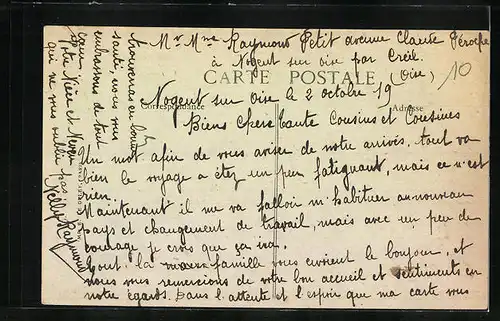 Mr Mme Raymond Petit avenue Claude Péroche
à Nogent sur oise par Creil
(Oise)
10
CARTE POSTALE
Correspondance
Adresse
Nogent sur Oise le 2 octobre 19
Biens chers tante Cousins et Cousines
Un mot afin de vous aviser de notre arrivés, tout va
bien le voyage a étez un peu fatiguant, mais ce n'est
rien.
Maintenant il me va falloir m'habituer au nouveau
pays et changement de travail, mais avec un peu de
courage je crois que ça ira.
Tout la famille vous envoient le bonjour, et
nous vous remercions de votre bon accueil et sentiments en
notre égards. Dans l'attente et l'espoir que ma carte vous
trouveras en bonne
santé, nous vous
embrassons de tout
cœur
Votre Nièce et Neveu
qui ne vous oublie pas
Nelly Raymond